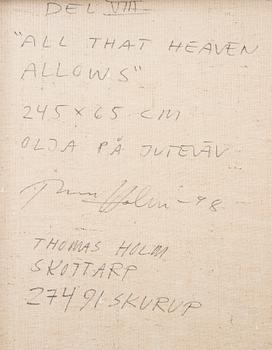 DEL VIII
"ALL THAT HEAVEN
ALLOWS"
245 x 65 CM
OLJA PÅ JUTEVÄV
Thomas Holm -98
THOMAS HOLM
SKOTTARP
274 91 SKURUP